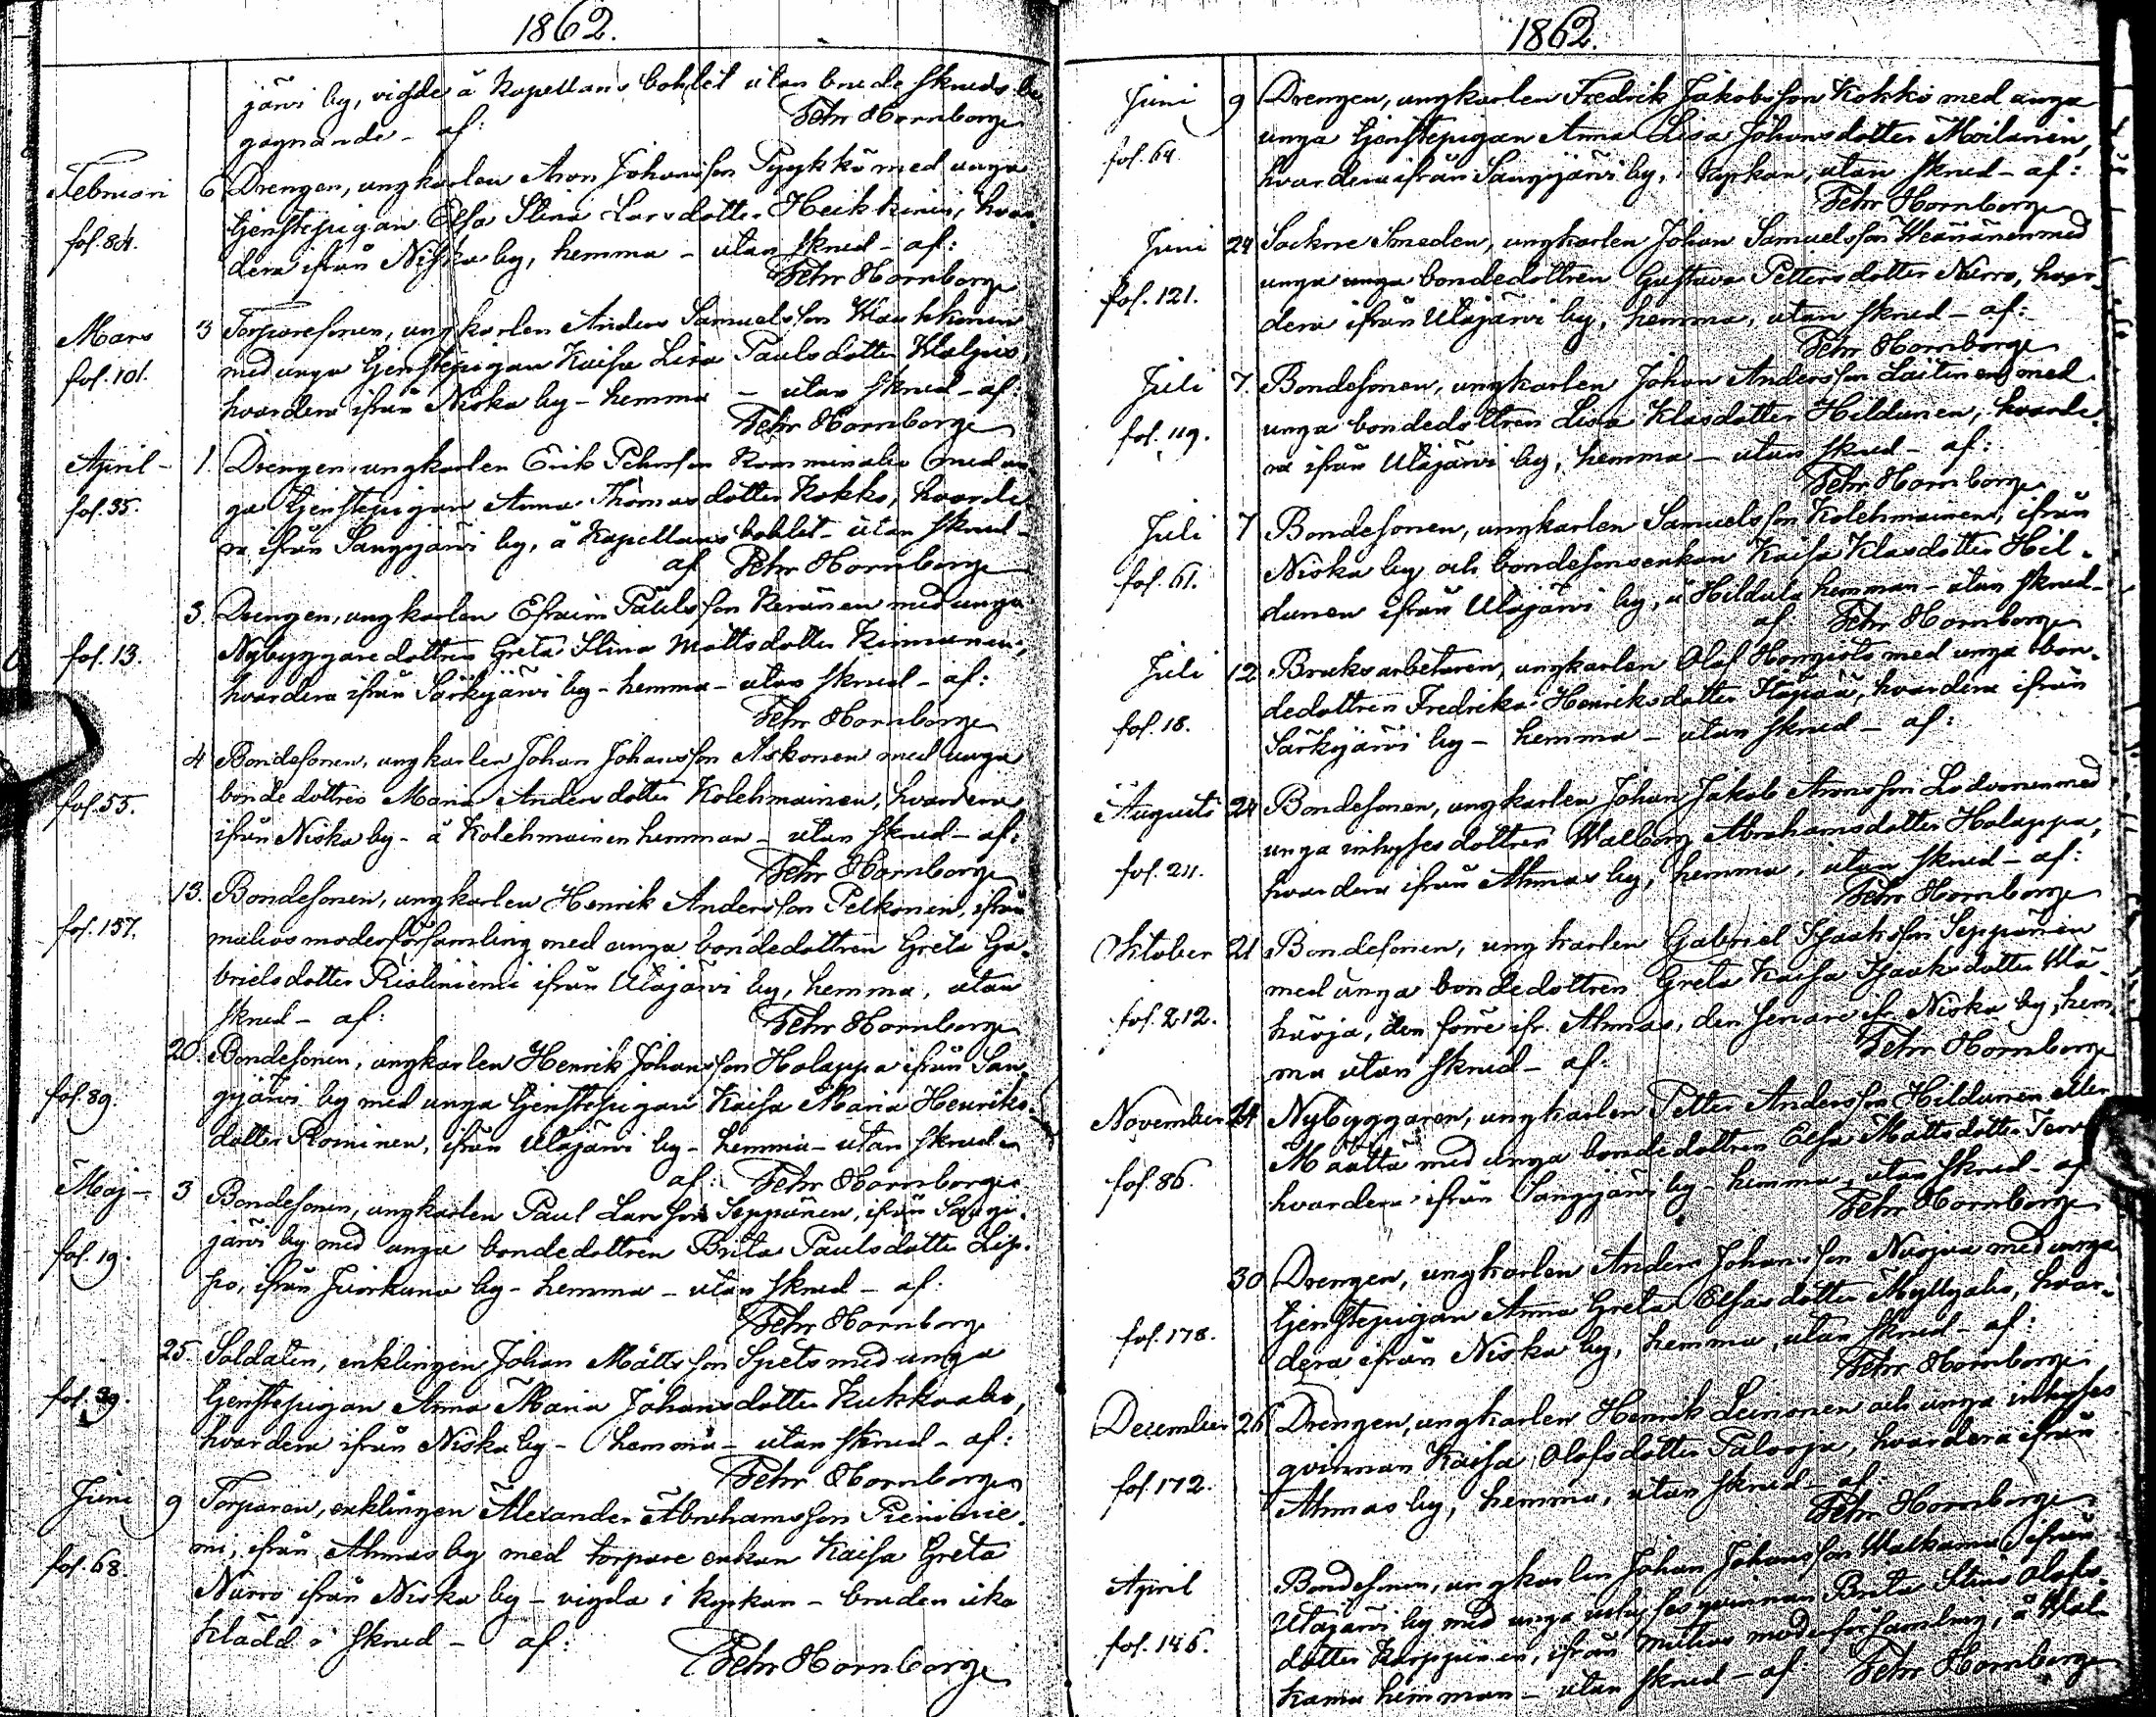 1862.
järvi by, vigde å Kapellans bohlet utan brude skruds be
gagnande - af:
Pehr Hornborg
Februari 6 Drengen, ungkarlen Aron Johansson Pyykkö med unga
fol. 84. tjenstepigan Elsa Stina Larsdotter Heikkinen, hvar
dera ifrån Niska by, hemma - utan skrud - af:
Pehr Hornborg
Mars 3 Torparesonen, ungkarlen Anders Samuelsson
fol. 101. med unga tjenstepigan Kaisa Lisa Paulsdotter
hvardera ifrån Niska by - hemma - utan skrud - af:
Pehr Hornborg
April - 1. Drengen, ungkarlen Erik Pehrsson med un
fol. 35. ga tjenstepigan Anna Thomasdotter Kokko, hvarde
ra ifrån Sangijärvi by, å Kapellans bohlet - utan skrud -
af Pehr Hornborg
3. Drengen, ungkarlen Efraim Paulsson Keränen med unga
fol. 13. Nybyggaredottren Greta Stina Mattsdotter Kinnunen,
hvardera ifrån Särkijärvi by - hemma - utan skrud - af:
Pehr Hornborg
4 Bondesonen, ungkarlen Johan Johansson Askonen med unga
fol. 55. bondedottren Maria Andersdotter Kolehmainen, hvardera
ifrån Niska by - å Kolehmainen hemman - utan skrud - af:
Pehr Hornborg
13. Bondesonen, ungkarlen Henrik Andersson Pelkonen, ifrån
fol. 157. muhos moderförsamling med unga bondedottren Greta Ga
brielsdotter Ristiniemi ifrån Utajärvi by, hemma, utan
skrud - af:
Pehr Hornborg
20. Bondesonen, ungkarlen Henrik Johansson Holappa ifrån San
fol. 89. gijärvi by med unga tjenstepigan Kaisa Maria Henriks
dotter Rominen, ifrån Utajärvi by - hemma - utan skrud -
af: Pehr Hornborg
Maj - 3 Bondesonen, ungkarlen Paul Larsson Seppänen, ifrån Sangi
fol. 19. järvi by med unga bondedottren Brita Paulsdotter Lip
po, ifrån Juorkuna by - hemma - utan skrud - af:
Pehr Hornborg
25. Soldaten, enklingen Johan Mattsson Spets med unga
fol. 39. tjenstepigan Anna Maria Johansdotter Kukkoaho,
hvardera ifrån Niska by - hemma - utan skrud - af:
Pehr Hornborg
Juni 9 Torparen, enklingen Alexander Abrahamsson
fol. 68. mi, ifrån Ahmas by med torpare enkan Kaisa Greta
Nurro ifrån Niska by - vigda i kyrkan - bruden icke
klädd i skrud - af:
Pehr Hornborg
1862.
Juni 9 Drengen, ungkarlen Fredrik Jakobsson Kokko med unga
fol. 64. unga tjenstepigan Anna Lisa Johansdotter Moilanen,
hvardera ifrån Sangijärvi by, i kyrkan, utan skrud - af:
Pehr Hornborg
Juni 24 Sockne Smeden, ungkarlen Johan Samuelsson Wäänänen med
fol. 121. unga unga bondedottren Gustava Pettersdotter Nurro, hvar
dera ifrån Utajärvi by, hemma, utan skrud - af:
Pehr Hornborg
Juli 7. Bondesonen, ungkarlen Johan Andersson Laitinen med
fol. 119. unga bondedottren Lisa Klasdotter Hildunen, hvarde
ra ifrån Utajärvi by, hemma - utan skrud - af:
Pehr Hornborg
Juli 7 Bondesonen, ungkarlen Samuelsson Kolehmainen, ifrån
fol. 61. Niska by och bondesonsenkan Kaisa Klasdotter Hil
dunen ifrån Utajärvi by, å Hildula hemman - utan skrud -
af Pehr Hornborg
Juli 12 Bruksarbetaren, ungkarlen Olof Hongisto med unga bon
fol. 18. dedottren Fredrika Henriksdotter Itäpää, hvardera ifrån
Särkijärvi by - hemma - utan skrud - af:
Augusti 24 Bondesonen, ungkarlen Johan Jakob Aronsson med
fol. 211. unga inhysesdottren Walborg Abrahamsdotter Holappa,
hvardera ifrån Ahmas by, hemma, utan skrud - af:
Pehr Hornborg
Oktober 21 Bondesonen, ungkarlen Gabriel Isaaksson Seppänen
fol. 212. med unga bondedottren Greta Kaisa Isaaksdotter Wä
häoja, den förre ifr. Ahmas, den senare ifr. Niska by, hem
ma utan skrud - af:
Pehr Hornborg
November 24 Nybyggaren, ungkarlen Petter Andersson Hildunen eller
fol. 86. Määttä med unga bondedottren Elsa Mattsdotter
hvardera ifrån Sangijärvi by - hemma, utan skrud - af
Pehr Hornborg
30 Drengen, ungkarlen Anders Johansson Nuojua med unga
fol. 178. tjenstepigan Anna Greta Eliasdotter Myllyaho, hvar
dera ifrån Niska by, hemma, utan skrud - af:
Pehr Hornborg
December 26 Drengen, ungkarlen Henrik Leinonen och unga inhyses
fol. 172. qvinnan Kaisa Olofsdotter Talooja, hvardera ifrån
Ahmas by, hemma, utan skrud - af
Pehr Hornborg
April Bondesonen, ungkarlen Johan Johansson Walkama ifrån
fol. 146. Utajärvi by med unga inhysesqvinnan Brita Stina Olofs
dotter Karppinen, ifrån muhos moderförsamling, å Wal
kama hemman - utan skrud - af: Pehr Hornborg